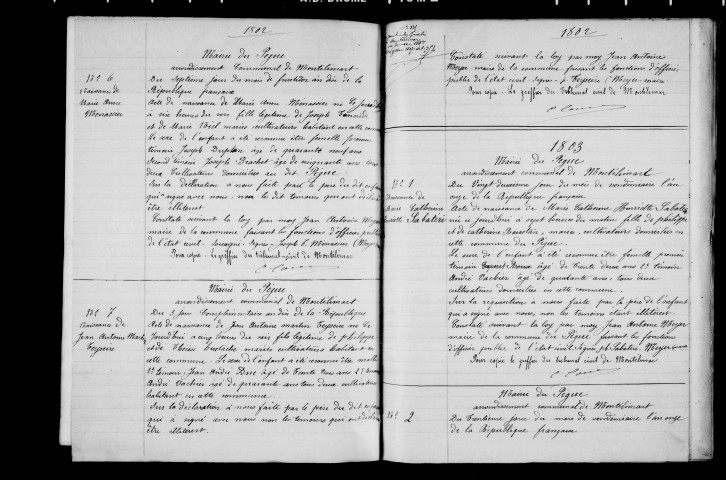 1802
Mairie du Pègue
arrondissement Communal de Montélimart
N° 6
Naissance de
Marie Anne
Monassier
Du Septième jour du mois de fructidor an dix de la
République française
Acte de naissance de Marie Anne Monassier née le jour
à six heures du soir fille légitime de Joseph
et de Marie mariés cultivateurs habitant en cette com
le sexe de l'enfant a été reconnu être femelle premier
témoin Joseph Duplan âgé de quarante neuf ans
Second témoin Joseph Brachet âgé de cinquante ans tous
deux Cultivateurs domiciliés au dit Pègue
Sur la déclaration à nous faite par le père du dit enfant
qui a signé avec nous, non le dit témoins qui ont déclaré
être illiteret
Constaté suivant la loy par moy Jean Antoine Meyer
maire de la commune faisant les fonctions d'officier public
de l'état civil soussigné. Signé: Joseph Monassier Meyer
Pour copie. Le greffier du tribunal civil de Montélimar
Mairie du Pègue
arrondissement communal de Montélimart
N° 7
Naissance de
Jean Antoine Martin
Teyssire
Du 5 jour Complémentaire an dix de la République
Acte de naissance de Jean Antoine martin Teyssire né le
Jourd'hui à cinq heures du soir fils légitime de philippe
et de mariés cultivateurs habitant en
cette commune. Le sexe de l'enfant a été reconnu être malle
1er témoin Jean André Duc âgé de Trente trois ans 2d témoin
André Vachier âgé de quarante ans tous deux cultivateurs
habitant en cette commune.
Sur la déclaration à nous faite par le père du dit enfant
qui a signé avec nous non les témoins qui ont déclaré
être illiteret.
1802
Constaté suivant la loy par moy Jean Antoine
Meyer maire de la commune faisant les fonctions d'officier
public de l'état civil signé: p. Teyssire Meyer maire
Pour copie. Le greffier du Tribunal civil de Montélimar
1803
Mairie du Pègue
arrondissement communal de Montélimart
N° 1
Naissance de
Marie Catherine
Henriette Sabatier
Du Vingt deuxième jour du mois de vendémiaire l'an
onze de la République française
Acte de naissance de Marie Catherine Henriette Sabatier
née ce jourd'hui à sept heures du matin fille de philippe
et de catherine mariés cultivateurs domiciliés en
cette commune du Pègue.
Le sexe de l'enfant a été reconnu être femelle premier
témoin âgé de Trente deux ans 2d témoin
André Vachier âgé de quarante ans tous deux
cultivateurs domiciliés en cette commune.
Sur la réquisition à nous faite par le père de l'enfant
qui a signé avec nous, non les témoins étant illiteret.
Constaté suivant la loy par moy Jean Antoine Meyer
maire de la commune du Pègue faisant les fonctions
d'officier public de l'état civil Signés ph. Sabatier Meyer maire
Pour copie le greffier du tribunal civil de Montélimar
Mairie du Pègue
arrondissement communal de Montélimart
N° 2
Du Trentième jour du mois de vendémiaire l'an onze
de la République française